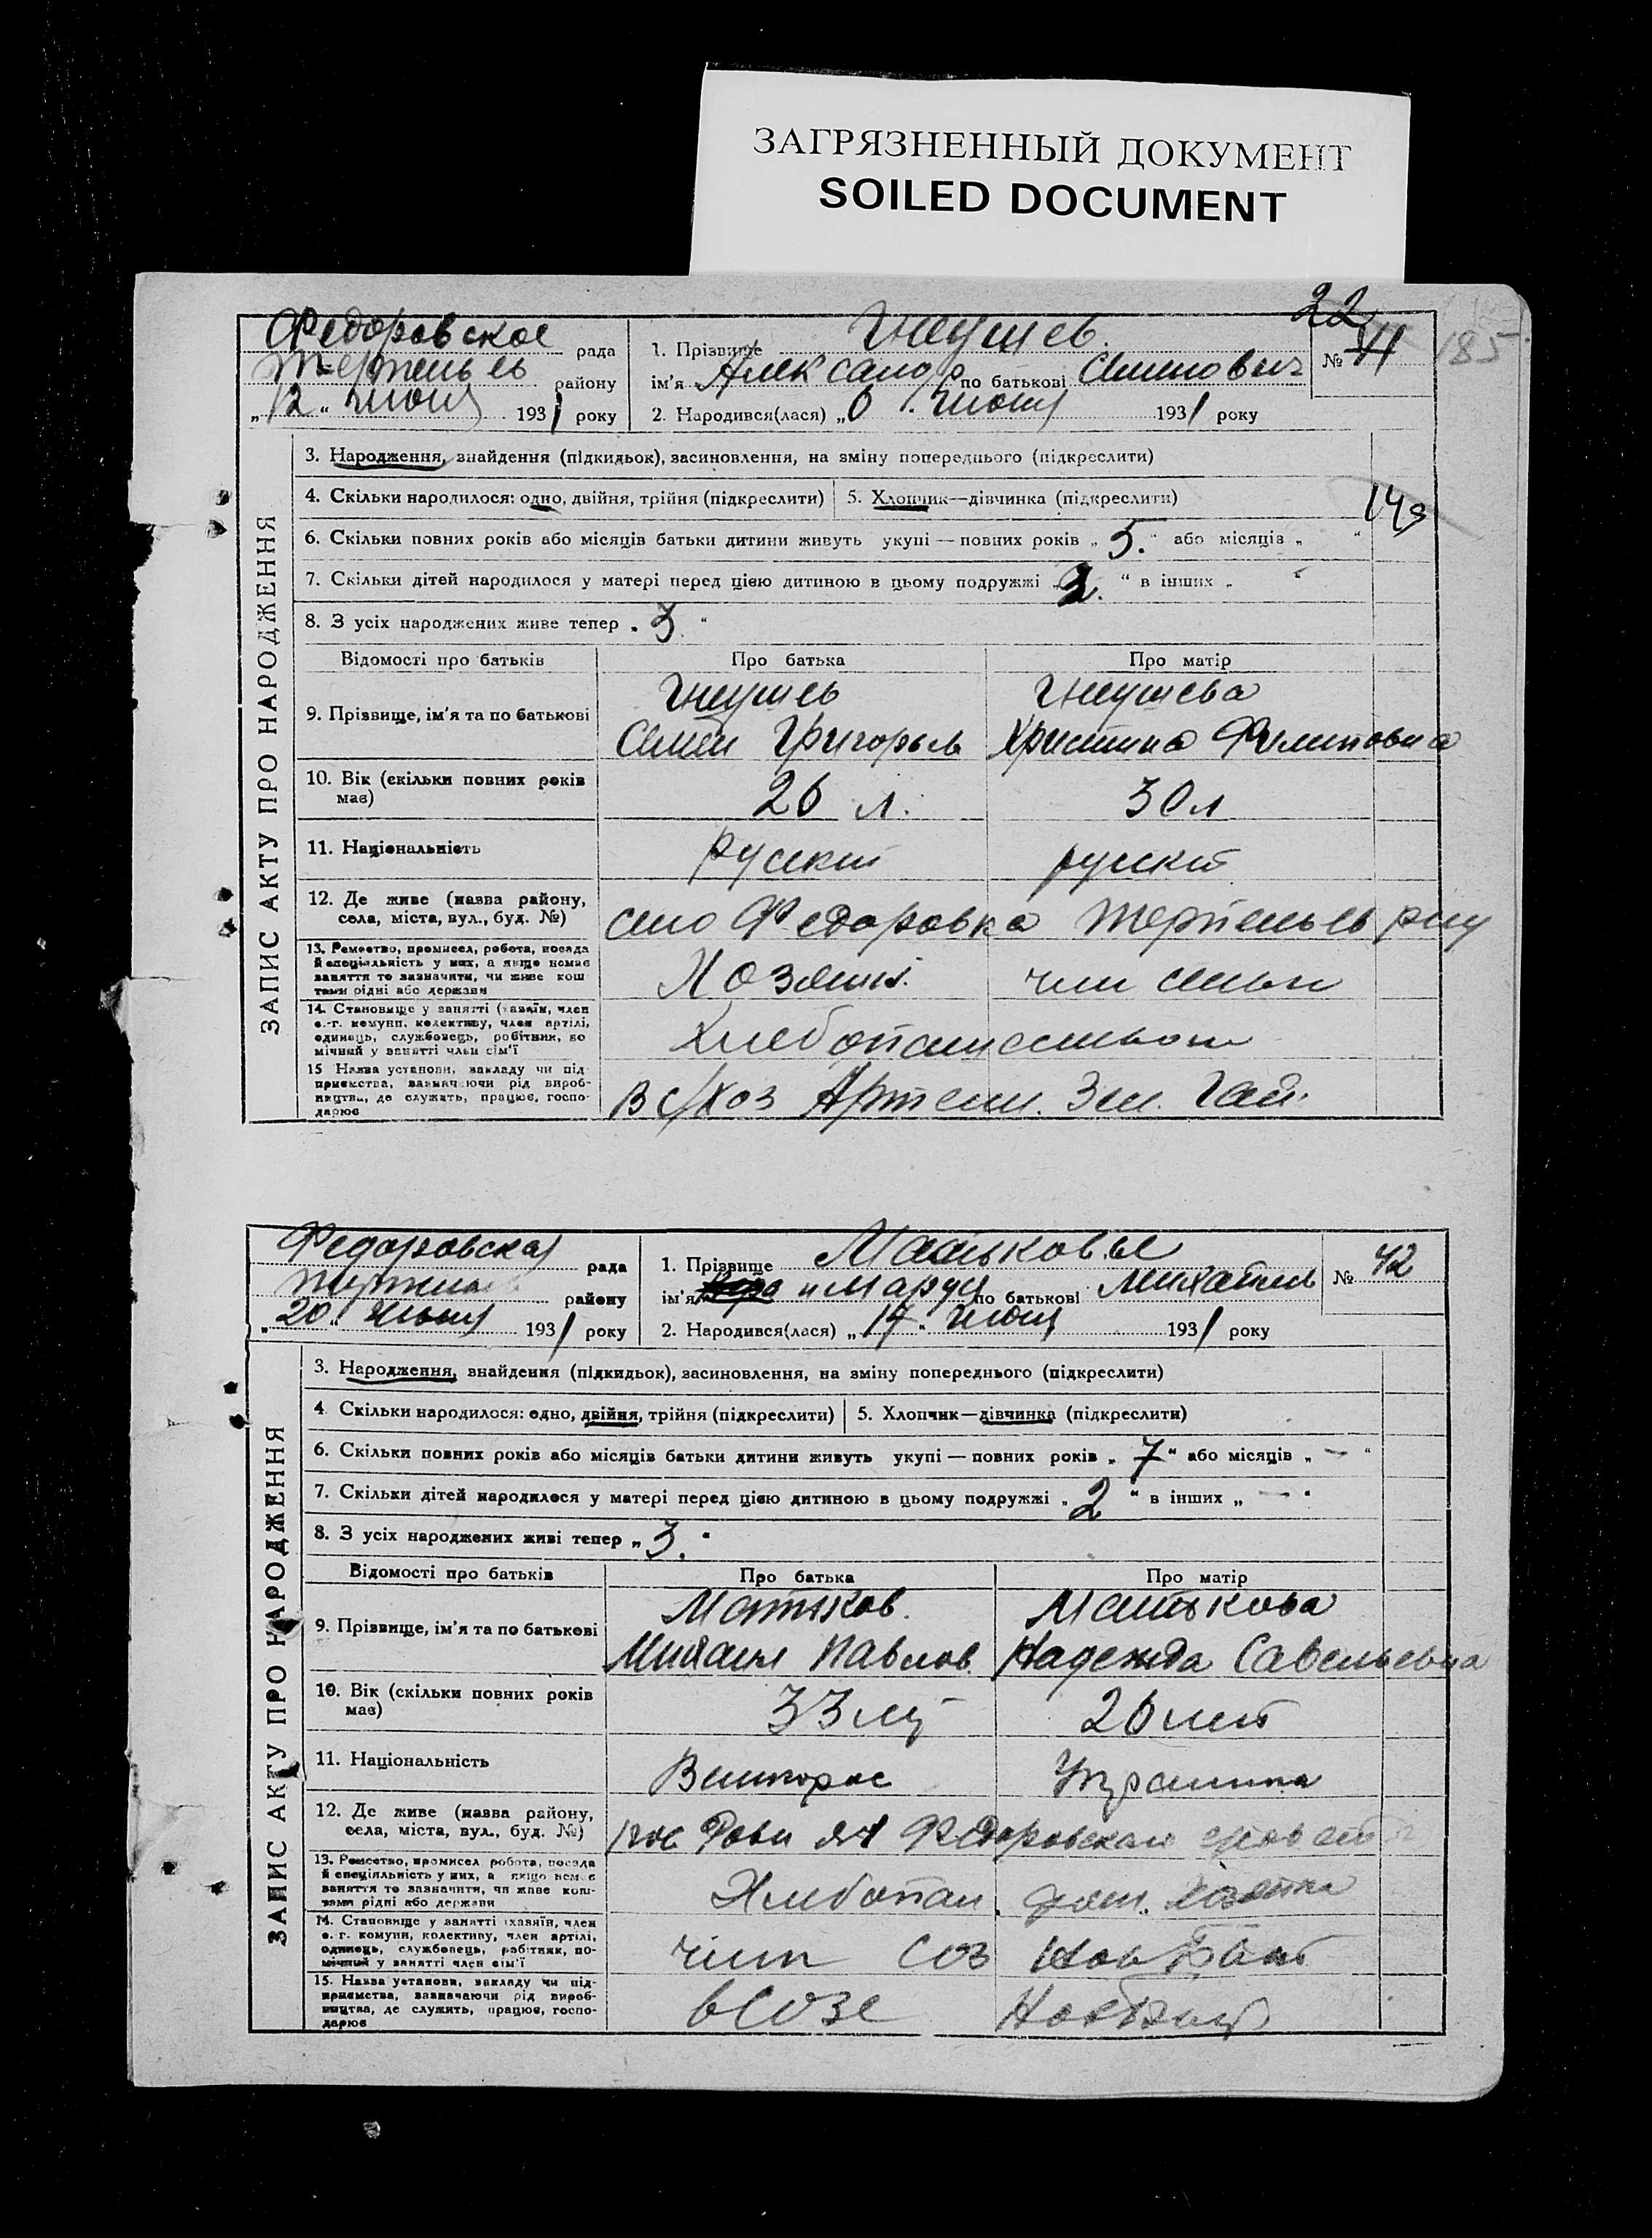 ЗАГРЯЗНЕННЫЙ ДОКУМЕНТ
SOILED DOCUMENT
22
№ 41
185
Федоровское рада
района
району
„12“ июня 1931 року
1. Прізвище Гнеушев.
ім'я Александр по батькові Семенович
2. Народився(лася) „6“ июня 1931 року
ЗАПИС АКТУ ПРО НАРОДЖЕННЯ
3. Народження, знайдення (підкидьок), засиновлення, на зміну попереднього (підкреслити)
4. Скільки народилося: одно, двійня, трійня (підкреслити)
5. Хлопчик—дівчинка (підкреслити)
6. Скільки повних років або місяців батьки дитини живуть укупі — повних років „5.“ або місяців „ “
7. Скільки дітей народилося у матері перед цією дитиною в цьому подружжі „ “ в інших „ “
8. З усіх народжених живе тепер „3“
Відомості про батьків
Про батька
Про матір
9. Прізвище, ім'я та по батькові
Гнеушев
Гнеушева
Семен Григорьев
Христина Филиповна
10. Вік (скільки повних років має)
26 л.
30 л
11. Національність
русский
русский
12. Де живе (назва району, села, міста, вул., буд. №)
село Федоровка
13. Ремество, промисел, робота, посада й спеціяльність у них, а якщо немає заняття то зазначити, чи живе коштами рідні або держави
Хозяин.
член семьи
14. Становище у занятті (хазяїн, член с.-г. комуни, колективу, член артілі, одинець, службовець, робітник, помічний у занятті член сім'ї
15 Назва установи, закладу чи підприємства, зазначаючи рід виробництва, де служить, працює, господарює
В с/хоз Артели.
Федоровская рада
району
„20“ 1931 року
1. Прізвище Матьковы
ім'я и Маруся по батькові
№ 42
2. Народився(лася) „17“ июня 1931 року
ЗАПИС АКТУ ПРО НАРОДЖЕННЯ
3. Народження, знайдення (підкидьок), засиновлення, на зміну попереднього (підкреслити)
4 Скільки народилося: одно, двійня, трійня (підкреслити)
5. Хлопчик—дівчинка (підкреслити)
6. Скільки повних років або місяців батьки дитини живуть укупі — повних років „7“ або місяців „—“
7. Скільки дітей народилося у матері перед цією дитиною в цьому подружжі „2“ в інших „—“
8. З усіх народжених живі тепер „3.“
Відомості про батьків
Про батька
Про матір
9. Прізвище, ім'я та по батькові
Матьков.
Матькова
Михаил Павлов
Надежда Савельевна
10. Вік (скільки повних років має)
33
26 лет
11. Національність
Великорос
Украинка
12. Де живе (назва району, села, міста, вул., буд. №)
13. Ремество, промисел робота, посада й спеціяльність у них, а якщо немає заняття то зазначити, чи живе коштами рідні або держави
14. Становище у занятті (хазяїн, член с. г. комуни, колективу, член артілі, одинець, службовець, робітник, помічний у занятті член сім'ї
СОЗ
15. Назва установи, закладу чи підприємства, зазначаючи рід виробництва, де служить, працює, господарює
в СОЗе